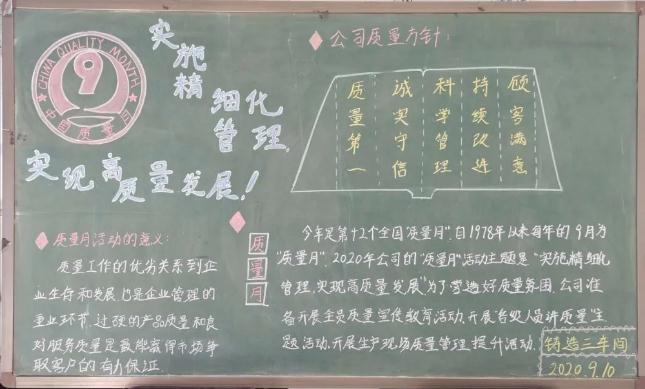 CHINA QUALITY MONTH
9
中国质量月
实施
精
细化
管理,
实现高质量发展!
公司质量方针:
质量第一
诚实守信
科学管理
持续改进
顾客满意
质量月活动的意义:
质量工作的优劣关系到企
业生存和发展,也是企业管理的
重业环节,过硬的产品质量和良
对服务质量是最能赢得市场争
取客户的有力保证
质量月
今年是第42个全国"质量月".自1978年以来每年的9月为
"质量月".2020年公司的"质量月"活动主题是"实施精细化
管理,实现高质量发展"为了营造好质量氛围,公司准
备开展全员质量宣传教育活动,开展各级人员讲质量主
题活动,开展生产现场质量管理提升活动.
铸造三车间
2020.9.10